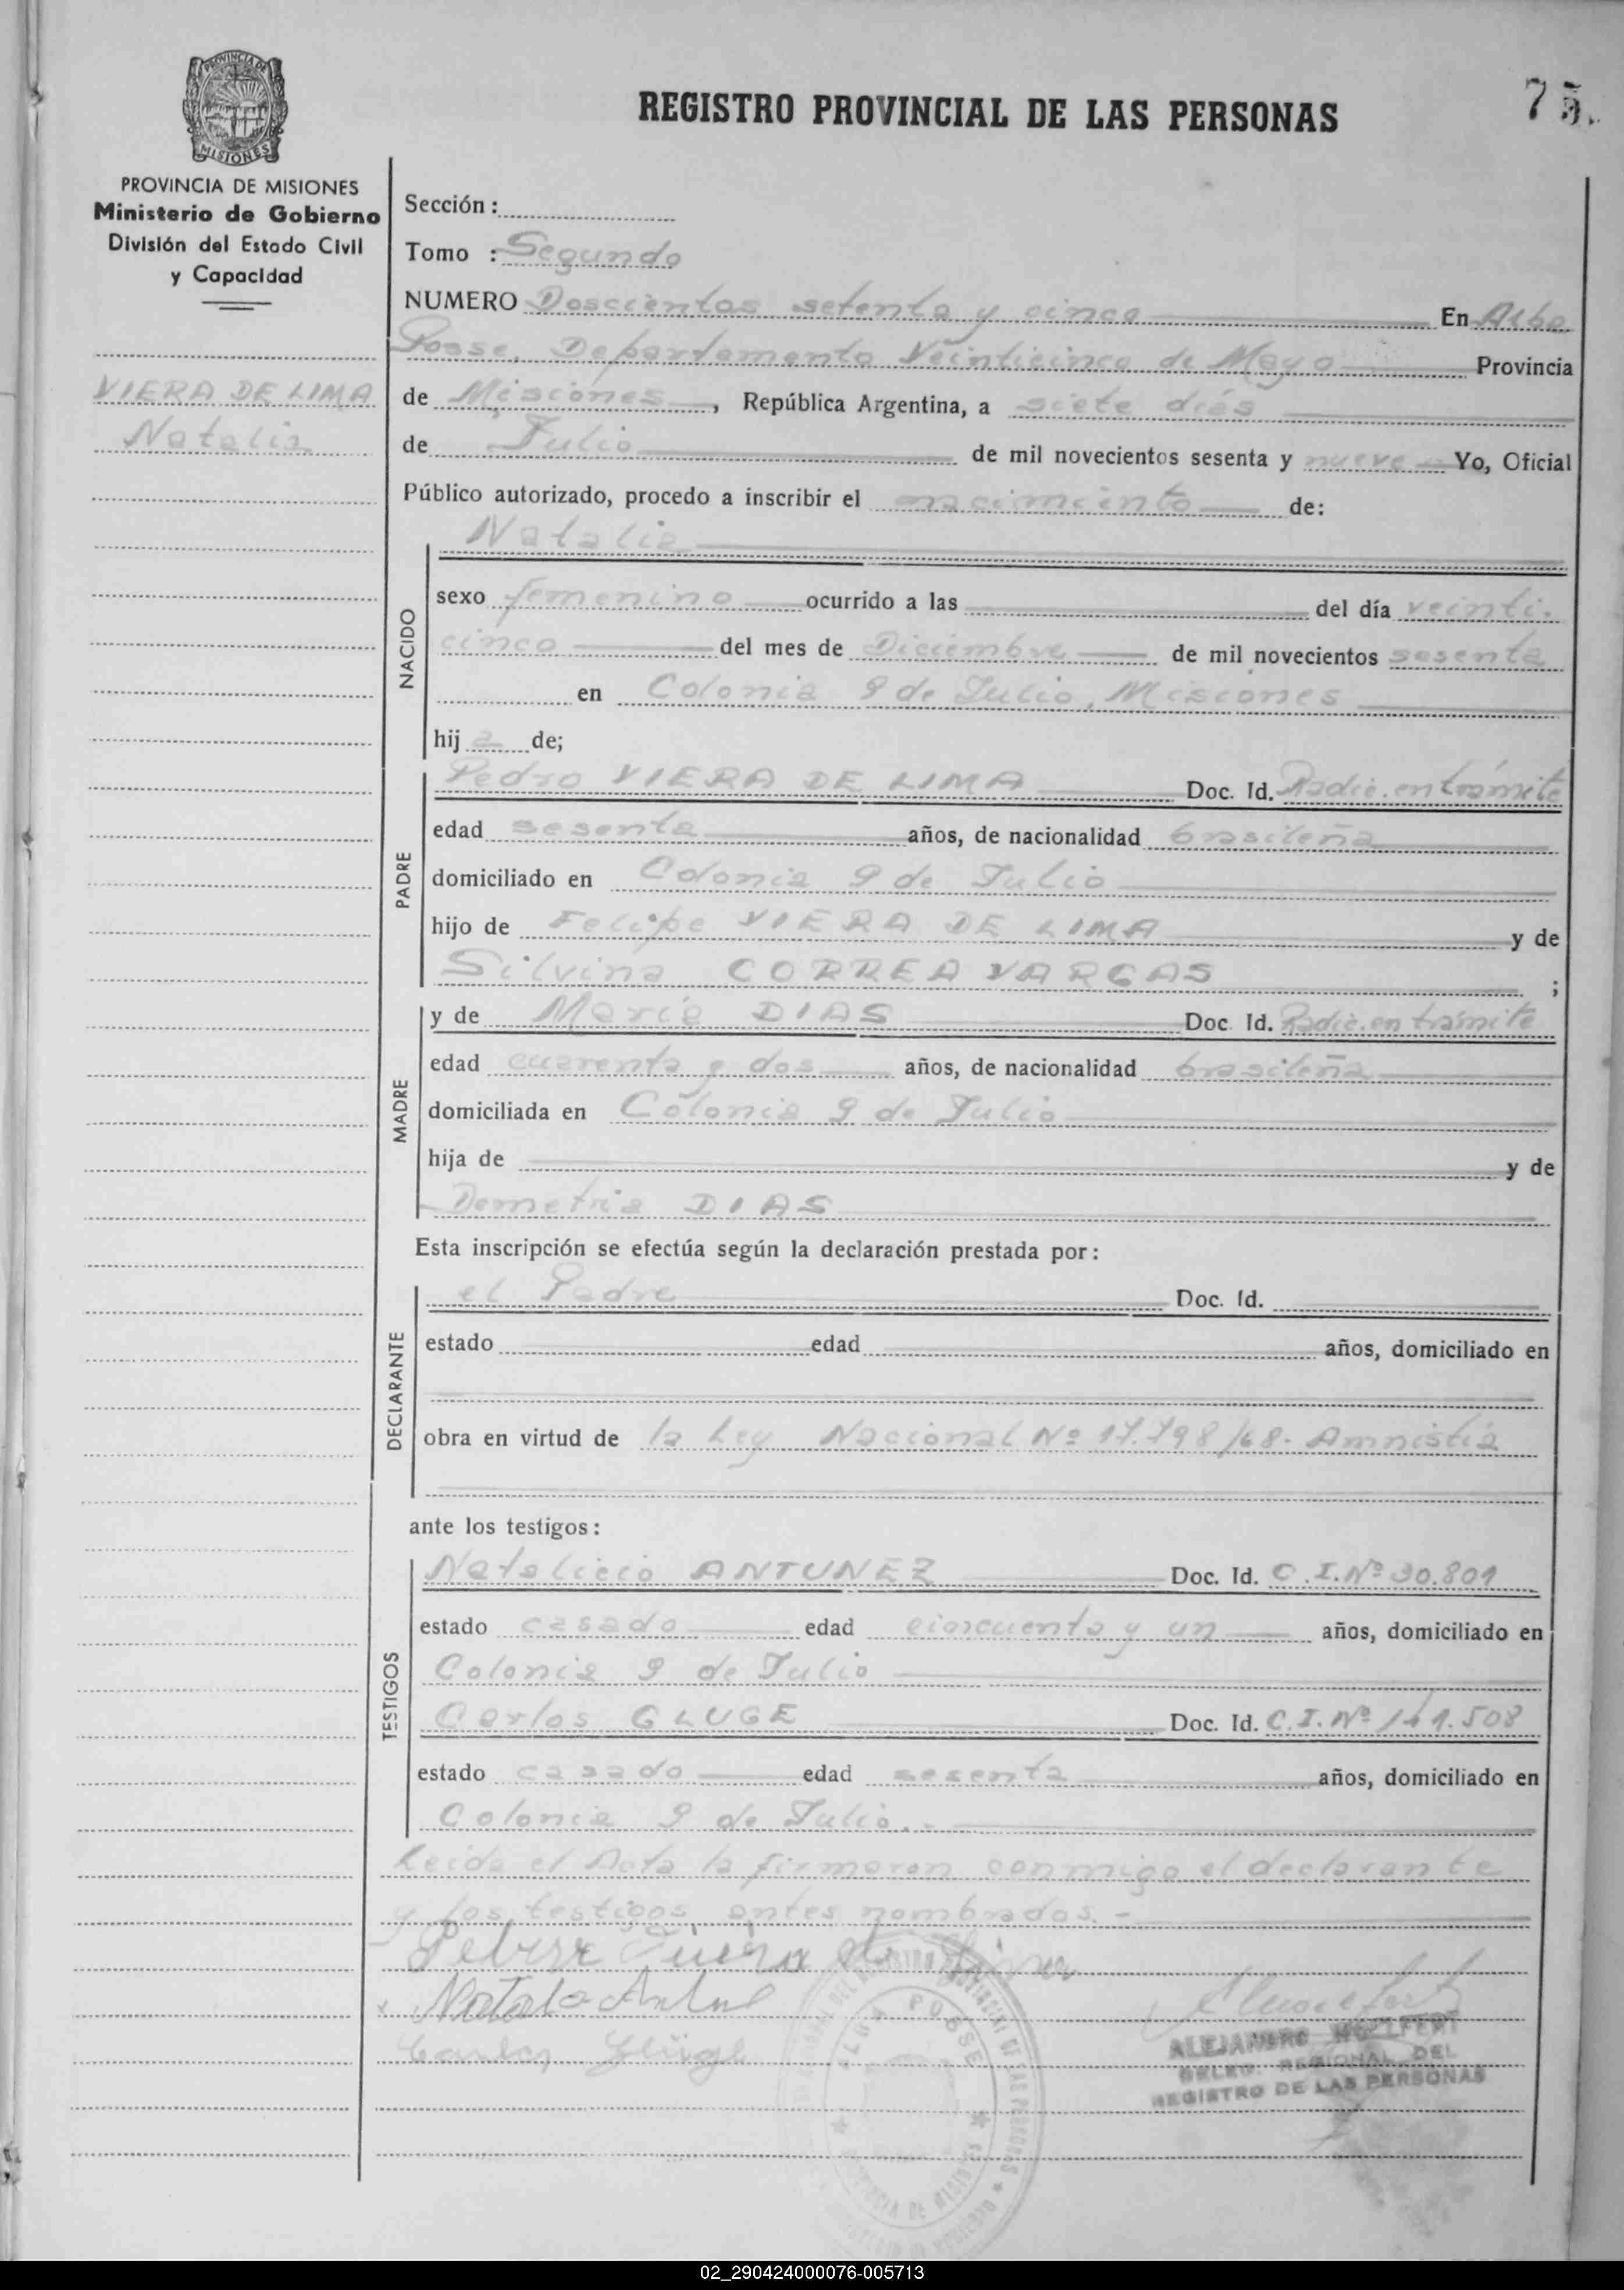 REGISTRO PROVINCIAL DE LAS PERSONAS
75.
PROVINCIA DE MISIONES
MISIONES
PROVINCIA DE MISIONES
Ministerio de Gobierno
División del Estado Civil
y Capacidad
VIERA DE LIMA
Natalia
Sección :
Tomo : Segundo
NUMERO Doscientos setenta y cinco En Alba
Posse, Departamento Veinticinco de Mayo Provincia
de Misiones, República Argentina, a siete días
de Julio de mil novecientos sesenta y nueve Yo, Oficial
Público autorizado, procedo a inscribir el nacimiento de:
Natalia
NACIDO
sexo femenino ocurrido a las del día veinti-
cinco del mes de Diciembre de mil novecientos sesenta
en Colonia 9 de Julio, Misiones
hij a de;
PADRE
Pedro VIERA DE LIMA Doc. Id. Radic. en trámite
edad sesenta años, de nacionalidad brasileña
domiciliado en Colonia 9 de Julio
hijo de Felipe VIERA DE LIMA y de
Silvina CORREA VARGAS ;
MADRE
y de María DIAS Doc Id. Radic. en trámite
edad cuarenta y dos años, de nacionalidad brasileña
domiciliada en Colonia 9 de Julio
hija de y de
Demetria DIAS
Esta inscripción se efectúa según la declaración prestada por:
DECLARANTE
el Padre Doc. Id.
estado edad años, domiciliado en
obra en virtud de la Ley Nacional Nº 17.798/68. Amnistía
ante los testigos:
TESTIGOS
Natalicio ANTUNEZ Doc. Id. C.I.Nº 30.801
estado casado edad cincuenta y un años, domiciliado en
Colonia 9 de Julio
Carlos GLUGE Doc. Id. C.I. Nº 141.508
estado casado edad sesenta años, domiciliado en
Colonia 9 de Julio.-
Leida el Acta la firmaron conmigo el declarante
y los testigos antes nombrados.-
Viera de Lima
Carlos Glüge
ALBA POSSE
ALEJANDRO
DELEG. REGIONAL DEL
REGISTRO DE LAS PERSONAS
02_290424000076-005713